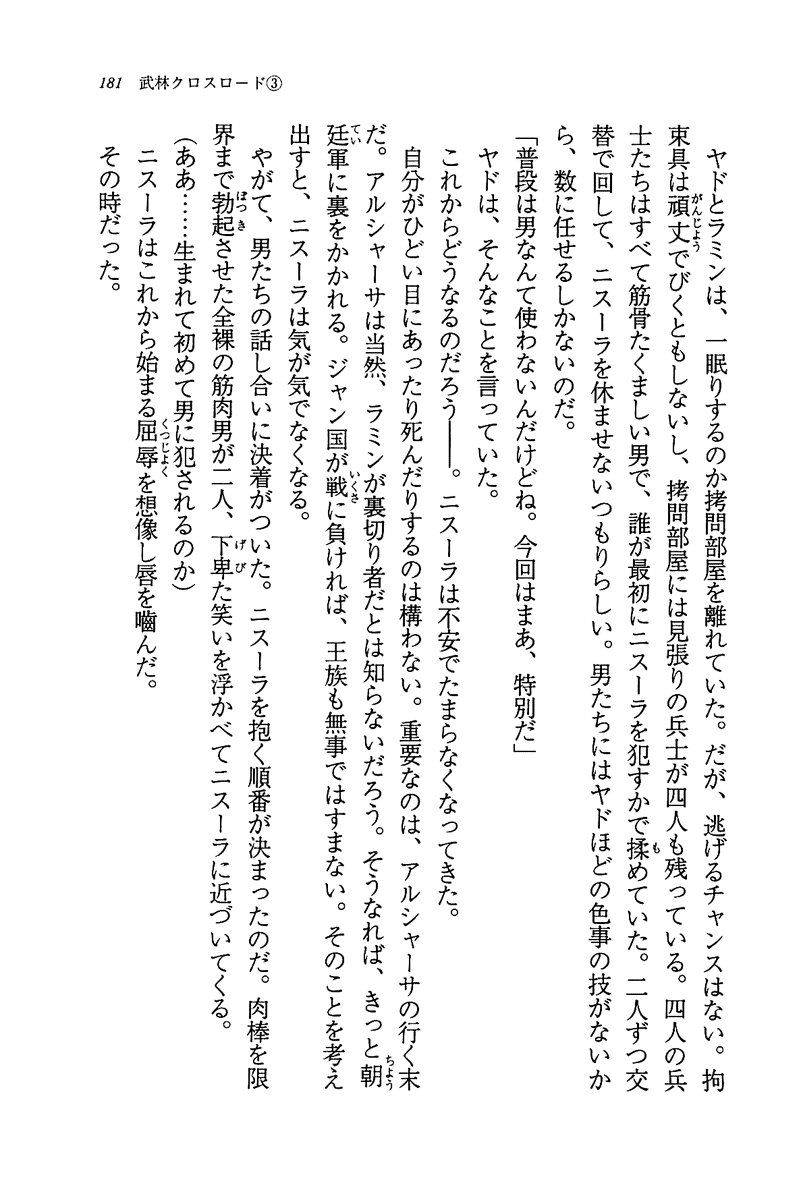 181 武林クロスロード③
ヤドとラミンは、一眠りするのか拷問部屋を離れていた。だが、逃げるチャンスはない。拘
束具は頑丈でびくともしないし、拷問部屋には見張りの兵士が四人も残っている。四人の兵
士たちはすべて筋骨たくましい男で、誰が最初にニスーラを犯すかで揉めていた。二人ずつ交
替で回して、ニスーラを休ませないつもりらしい。男たちにはヤドほどの色事の技がないか
ら、数に任せるしかないのだ。
「普段は男なんて使わないんだけどね。今回はまあ、特別だ」
ヤドは、そんなことを言っていた。
これからどうなるのだろう――。ニスーラは不安でたまらなくなってきた。
自分がひどい目にあったり死んだりするのは構わない。重要なのは、アルシャーサの行く末
だ。アルシャーサは当然、ラミンが裏切り者だとは知らないだろう。そうなれば、きっと朝
廷軍に裏をかかれる。ジャン国が戦に負ければ、王族も無事ではすまない。そのことを考え
出すと、ニスーラは気が気でなくなる。
やがて、男たちの話し合いに決着がついた。ニスーラを抱く順番が決まったのだ。肉棒を限
界まで勃起させた全裸の筋肉男が二人、下卑た笑いを浮かべてニスーラに近づいてくる。
(ああ……生まれて初めて男に犯されるのか)
ニスーラはこれから始まる屈辱を想像し唇を嚙んだ。
その時だった。